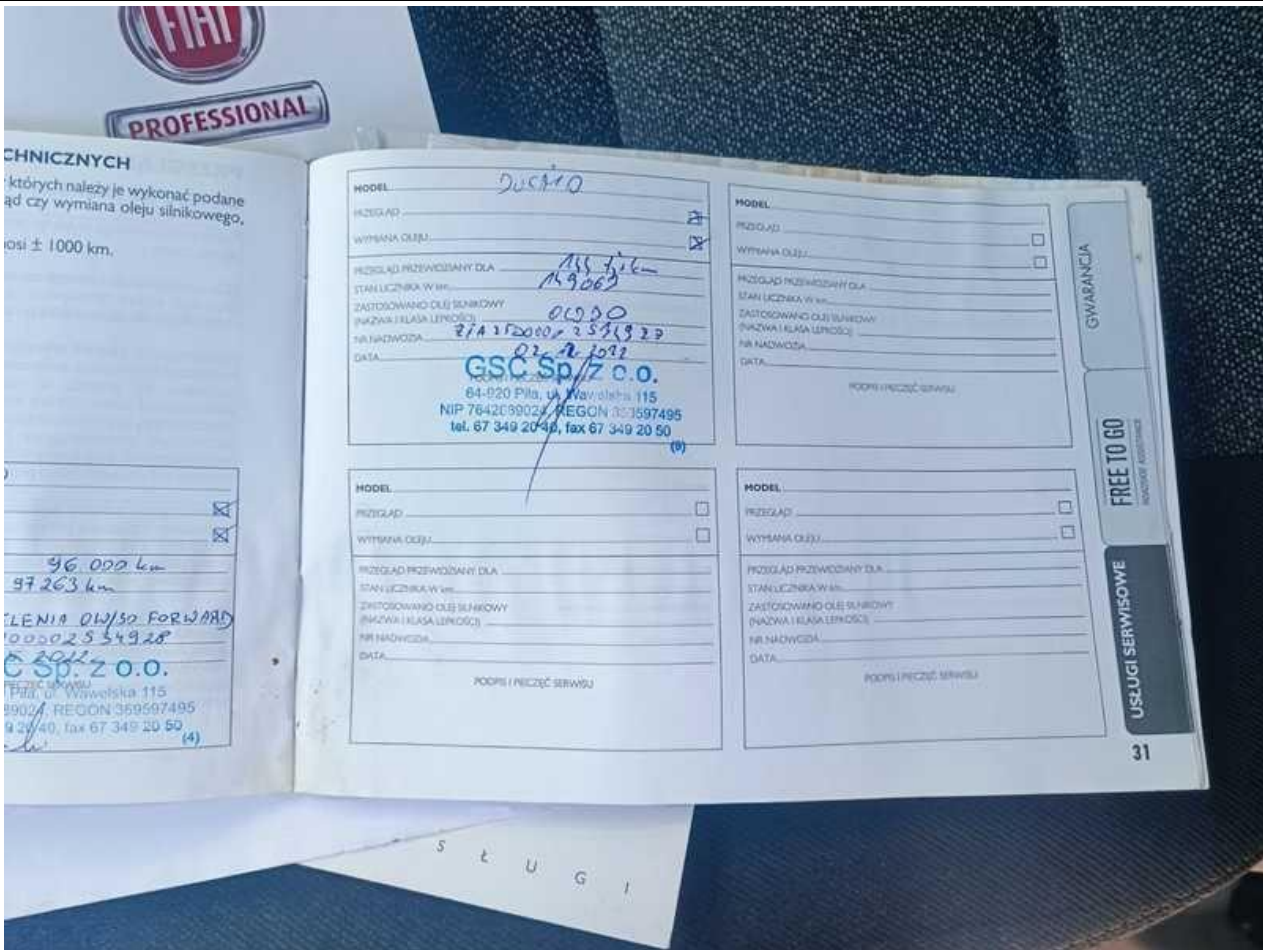 FIAT
PROFESSIONAL
CHNICZNYCH
których należy je wykonać podane
ąd czy wymiana oleju silnikowego,
osi ± 1000 km.
96.000 km
97263 km
LENIA 0W/30 FORWARD
2022
C Sp. z o.o.
Piła, ul. Wawelska 115
89024, REGON 369597495
9 20/40, fax 67 349 20 50
(4)
MODEL Ducato
PRZEGLĄD
WYMIANA OLEJU
PRZEGLĄD PRZEWIDZIANY DLA 144 km
STAN LICZNIKA W km 149063
ZASTOSOWANO OLEJ SILNIKOWY
(NAZWA I KLASA LEPKOŚCI)
NR NADWOZIA
DATA 02.12.2022
GSC Sp. z o.o.
64-920 Piła, ul. Wawelska 115
NIP 7642689024, REGON 369597495
tel. 67 349 20 40, fax 67 349 20 50
(9)
MODEL
PRZEGLĄD
WYMIANA OLEJU
PRZEGLĄD PRZEWIDZIANY DLA
STAN LICZNIKA W km
ZASTOSOWANO OLEJ SILNIKOWY
(NAZWA I KLASA LEPKOŚCI)
NR NADWOZIA
DATA
PODPIS I PIECZĘĆ SERWISU
MODEL
PRZEGLĄD
WYMIANA OLEJU
PRZEGLĄD PRZEWIDZIANY DLA
STAN LICZNIKA W km
ZASTOSOWANO OLEJ SILNIKOWY
(NAZWA I KLASA LEPKOŚCI)
NR NADWOZIA
DATA
PODPIS I PIECZĘĆ SERWISU
MODEL
PRZEGLĄD
WYMIANA OLEJU
PRZEGLĄD PRZEWIDZIANY DLA
STAN LICZNIKA W km
ZASTOSOWANO OLEJ SILNIKOWY
(NAZWA I KLASA LEPKOŚCI)
NR NADWOZIA
DATA
PODPIS I PIECZĘĆ SERWISU
GWARANCJA
FREE TO GO
ROADSIDE ASSISTANCE
USŁUGI SERWISOWE
31
S Ł U G I